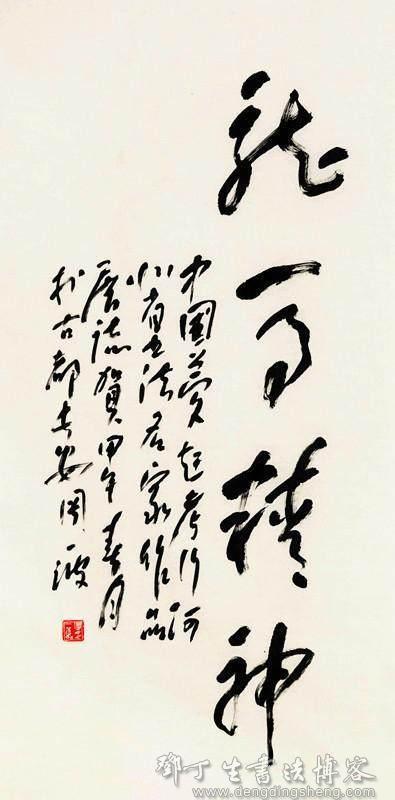 龍马精神
中国梦赶考行河
北省书法名家作品
展志贺甲午春月
於古都长安周一波
鄧丁生書法博客
www.dengdingsheng.com